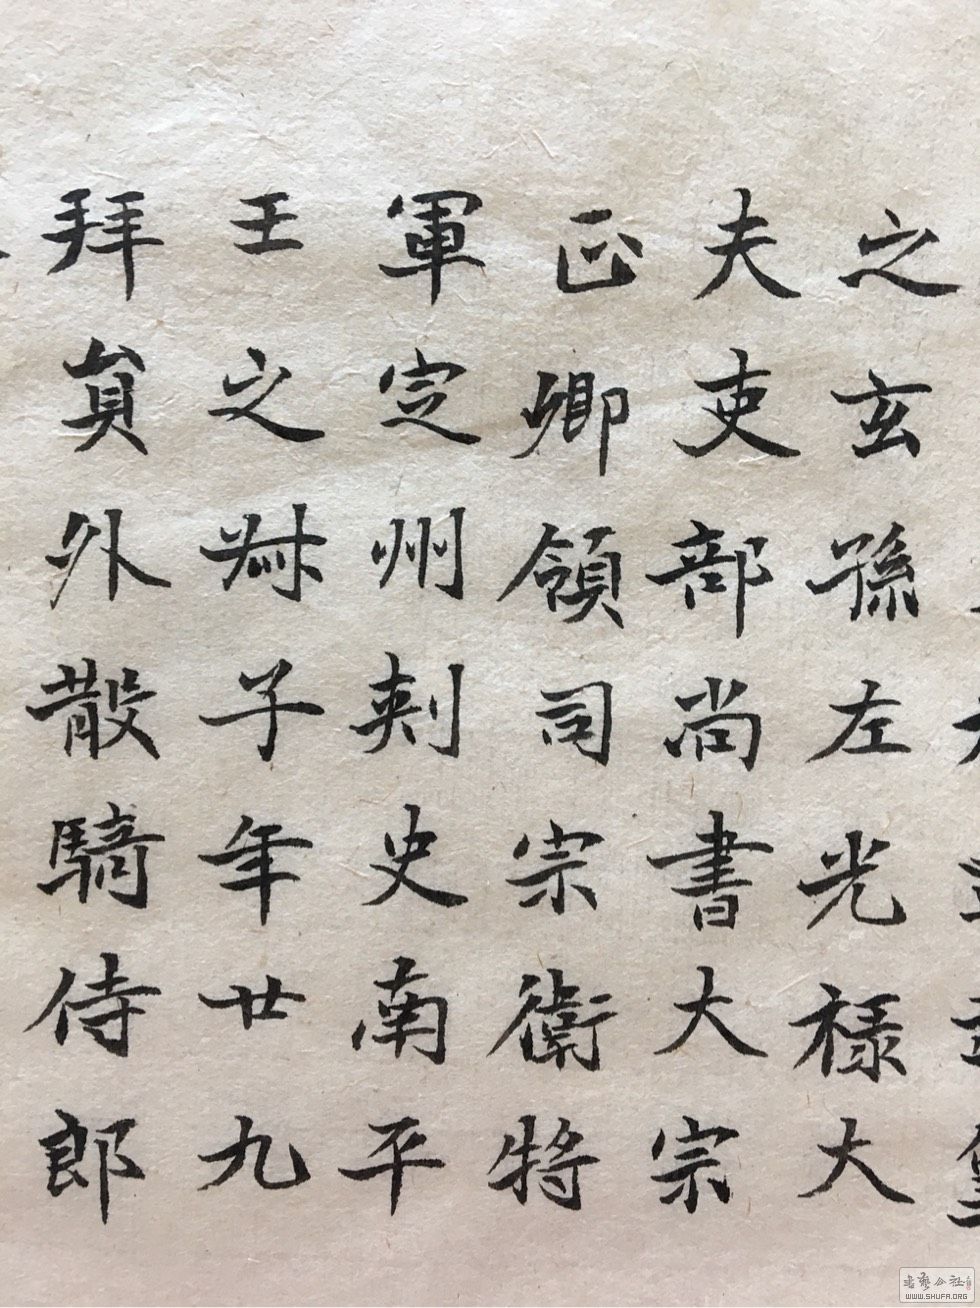 之玄孫左光祿大
夫吏部尚書大宗
正卿領司宗衛將
軍定州刺史南平
王之叔子年廿九
拜員外散騎侍郎
書藝公社
WWW.SHUFA.ORG